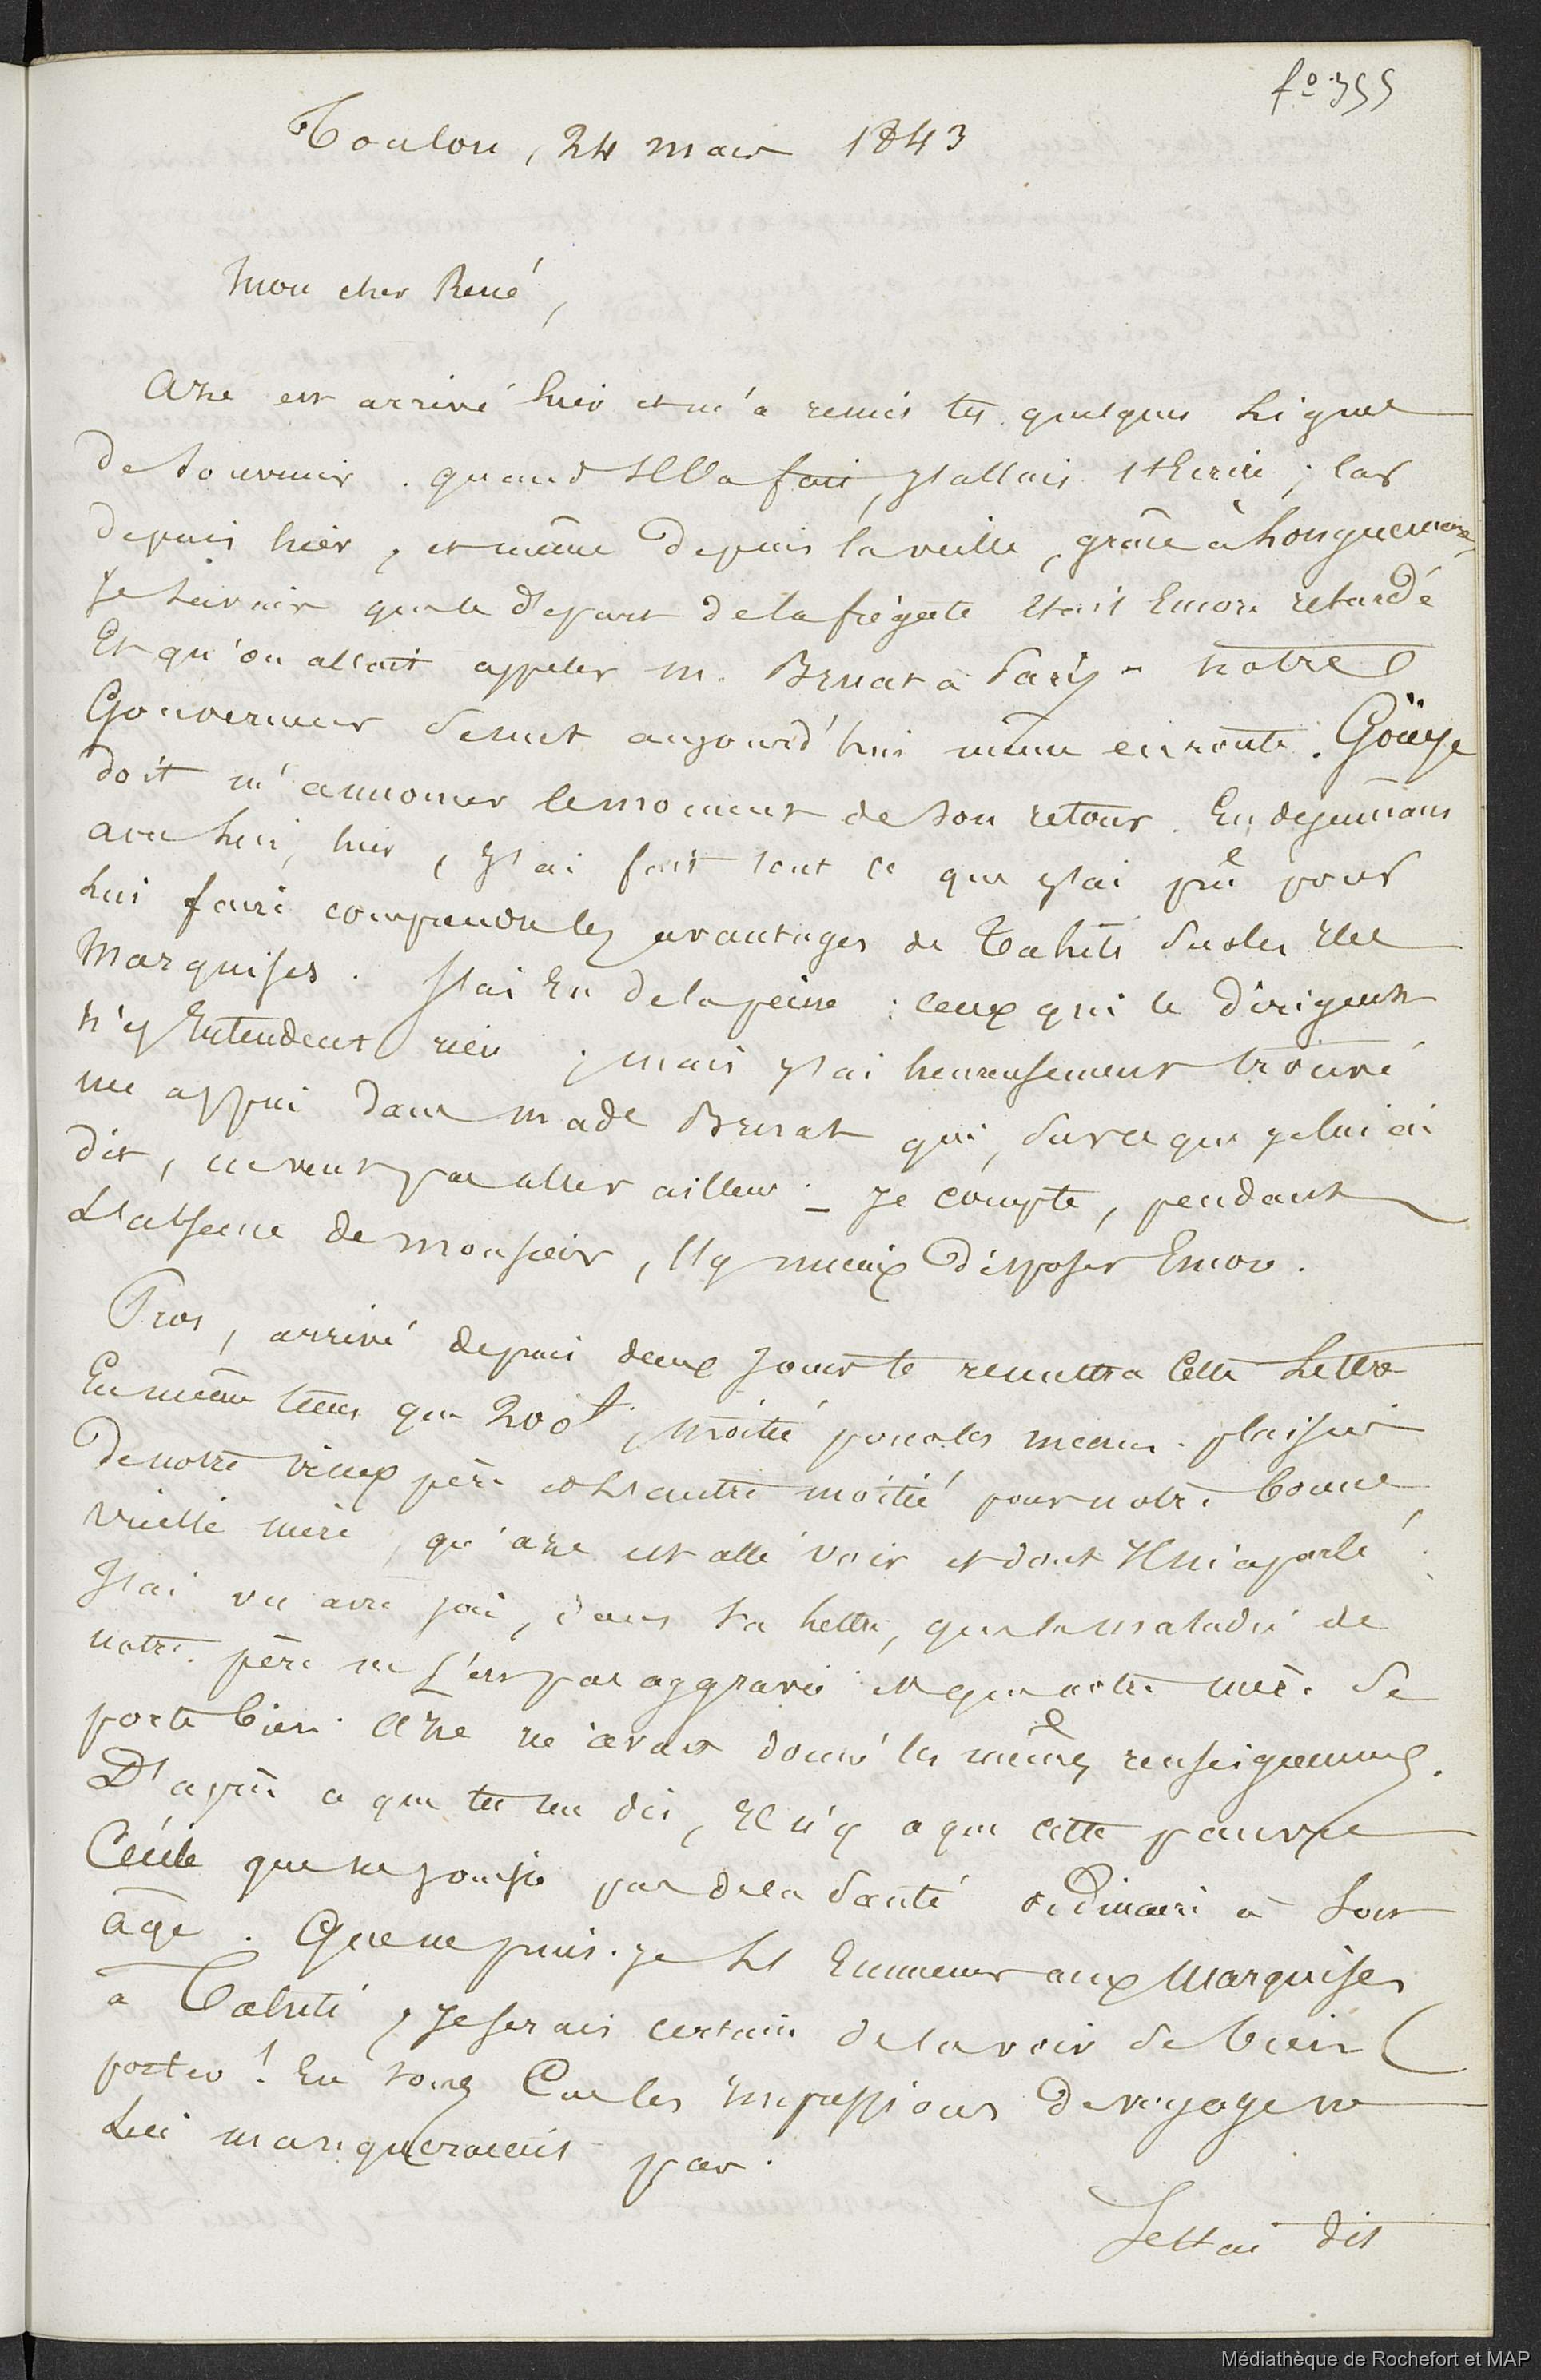 fo. 355
Toulon, 24 mars 1843
Mon cher René,
Aze est arrivé hier et m'a remis tes quelques lignes
de souvenir. quand il l'a fait, j'allais t'écrire ; car
depuis hier, et même depuis la veille, grâce à Longuemare,
je savais que le départ de la frégate était encore retardé
Et qu'on allait appeler M. Bruat à Paris - notre
Gouverneur se met aujourd'hui même en route. Goüye
doit m'annoncer le moment de son retour. En déjeunant
avec lui, hier, j'ai fait tout ce que j'ai pu pour
lui faire comprendre les avantages de Tahiti sur les Iles
Marquises. J'ai eu de la peine : ceux qui le dirigent
n'y entendent rien ; mais j'ai heureusement trouvé
un appui dans Made Bruat qui, sur ce que je lui ai
dit, ne veut pas aller ailleurs. - Je compte, pendant
L'absence de monsieur, l'y mieux disposer encore.
Pros, arrivé depuis deux jours te remettra cette Lettre
En même tems que 200f, moitié pour les menus plaisirs
De notre vieux père et l'autre moitié pour notre bonne
vieille mère, qu'Aze est allé voir et dont il m'a parlé.
J'ai vu avec joie, dans ta lettre, que la maladie de
notre père ne s'est pas aggravée et que notre mère se
porte bien. Aze m'avait donné les mêmes renseignemens.
D'après ce que tu me dis, Il n'y a que cette pauvre
Cécile que ne jouisse pas de la Santé ordinaire à son
âge. Que ne puis-je l'emmener aux Marquises
à Tahiti, Je serais certain de la voir se bien
porter ! En tous Cas les impressions de voyage ne
Lui manqueraient pas.
Je t'ai dit
Médiathèque de Rochefort et MAP